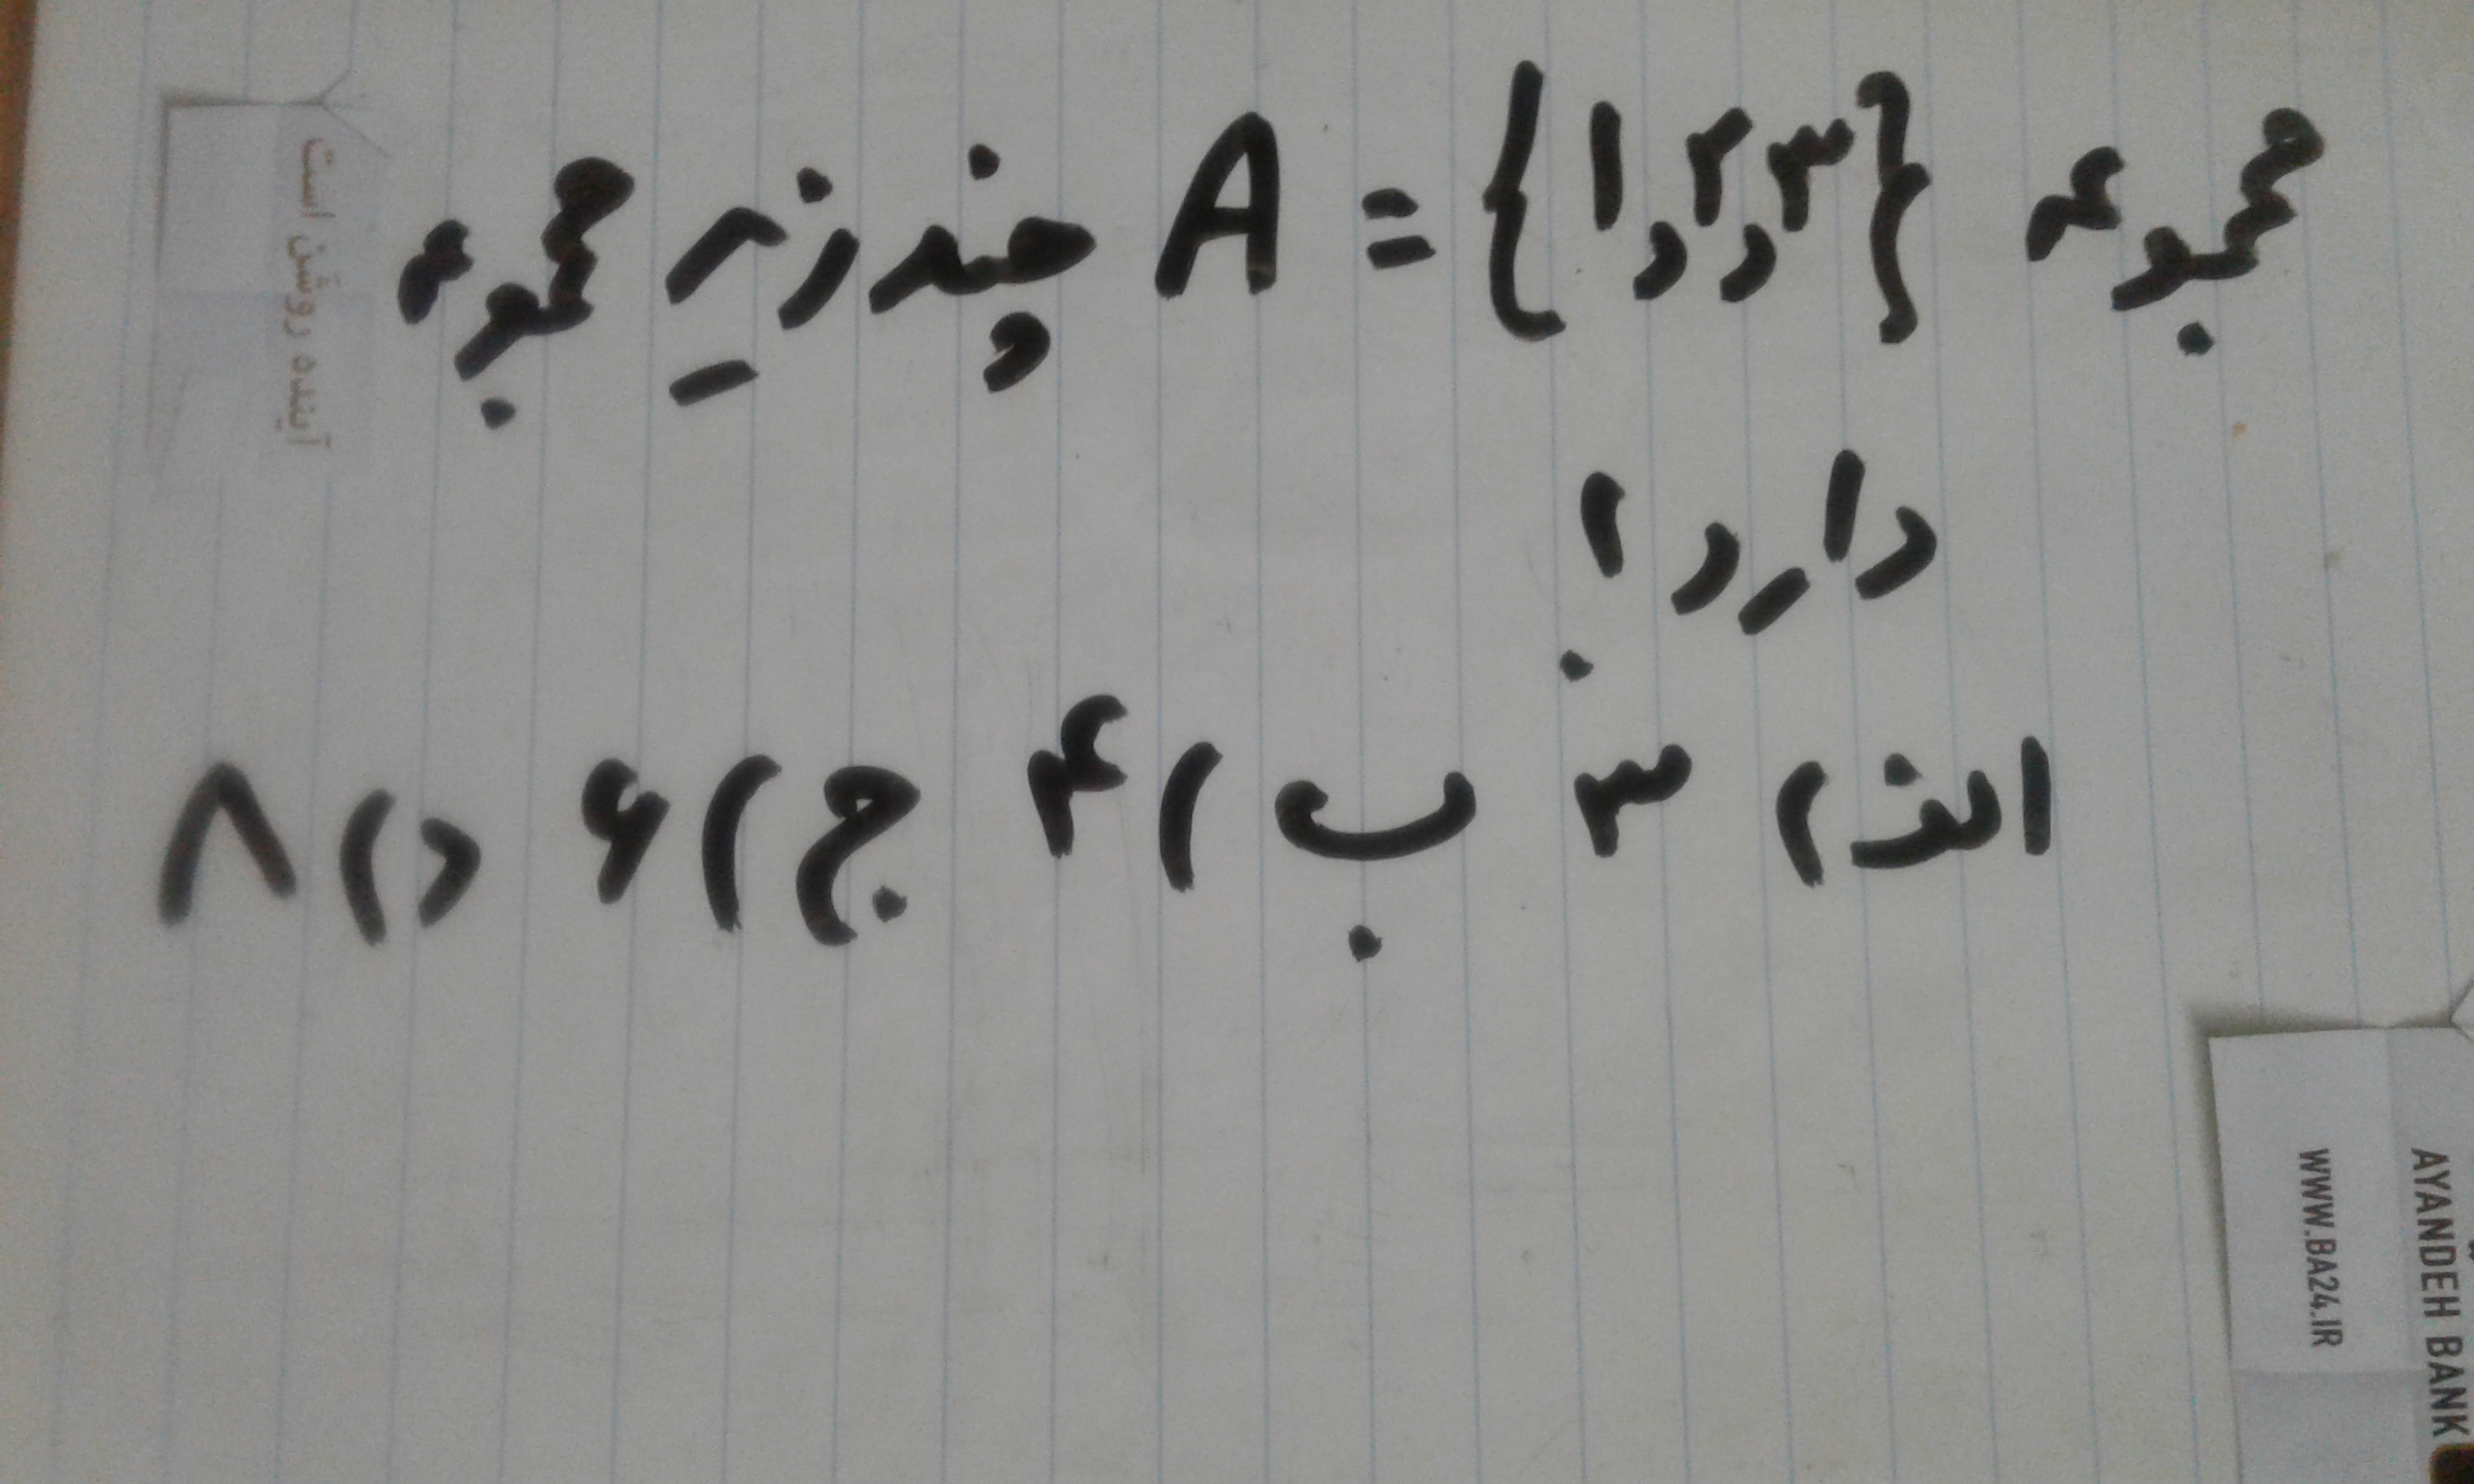 مجموعه A = {۱,۲,۳} چند زیر مجموعه
دارد؟
الف) ۳ ب) ۴ ج) ۶ د) ۸
آینده روشن است
AYANDEH BANK
WWW.BA24.IR